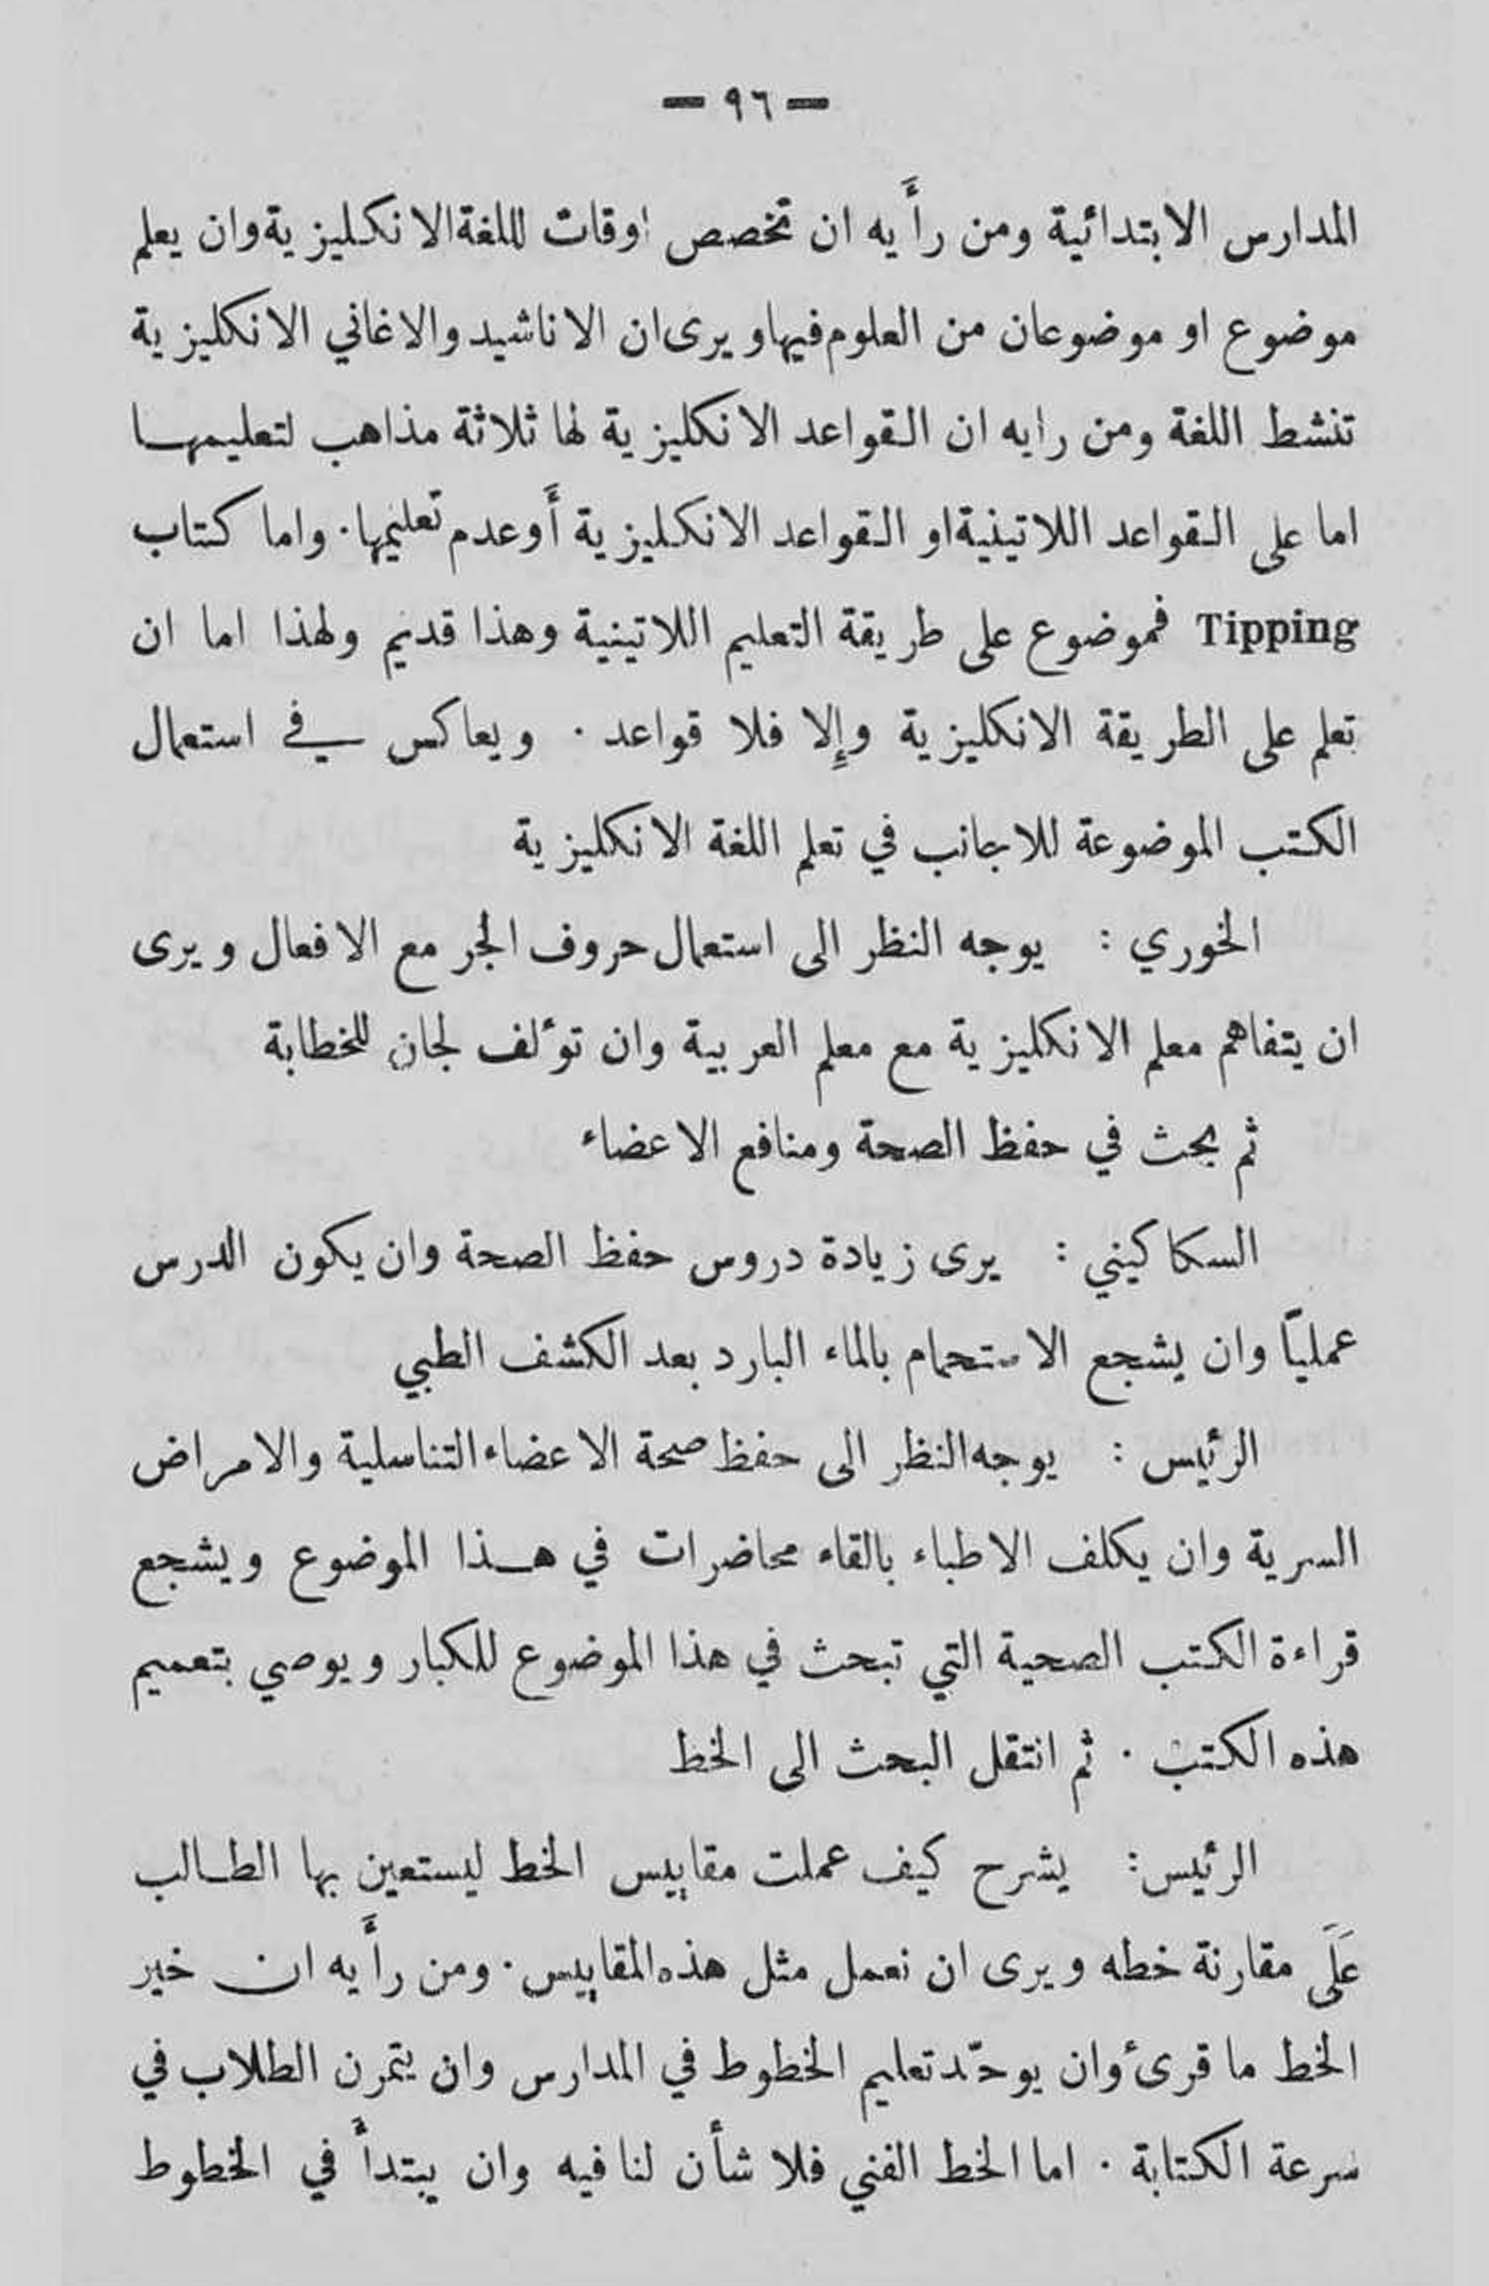 — ٩٦ —
المدارس الابتدائية ومن رأَيه ان تخصص اوقات للغة الانكليزية وان يعلم
موضوع او موضوعان من العلوم فيها ويرى ان الاناشيد والاغاني الانكليزية
تنشط اللغة ومن رايه ان القواعد الانكليزية لها ثلاثة مذاهب لتعليمها
اما على القواعد اللاتينية او القواعد الانكليزية أَو عدم تعليمها . واما كتاب
Tipping فموضوع على طريقة التعليم اللاتينية وهذا قديم ولهذا اما ان
تعلم على الطريقة الانكليزية وإلا فلا قواعد . ويعاكس في استعمال
الكتب الموضوعة للاجانب في تعلم اللغة الانكليزية
الخوري : يوجه النظر الى استعمال حروف الجر مع الافعال ويرى
ان يتفاهم معلم الانكليزية مع معلم العربية وان توٴلف لجان للخطابة
ثم بحث في حفظ الصحة ومنافع الاعضاء
السكاكيني : يرى زيادة دروس حفظ الصحة وان يكون الدرس
عمليّا وان يشجع الاستحمام بالماء البارد بعد الكشف الطبي
الرئيس : يوجه النظر الى حفظ صحة الاعضاء التناسلية والامراض
السرية وان يكلف الاطباء بالقاء محاضرات في هذا الموضوع ويشجع
قراءة الكتب الصحية التي تبحث في هذا الموضوع للكبار ويوصي بتعميم
هذه الكتب . ثم انتقل البحث الى الخط
الرئيس : يشرح كيف عملت مقاييس الخط ليستعين بها الطالب
عَلَى مقارنة خطه ويرى ان نعمل مثل هذه المقاييس . ومن رأَيه ان خير
الخط ما قرىٴ وان يوحّد تعليم الخطوط في المدارس وان يتمرن الطلاب في
سرعة الكتابة . اما الخط الفني فلا شأن لنا فيه وان يبتدأَ في الخطوط